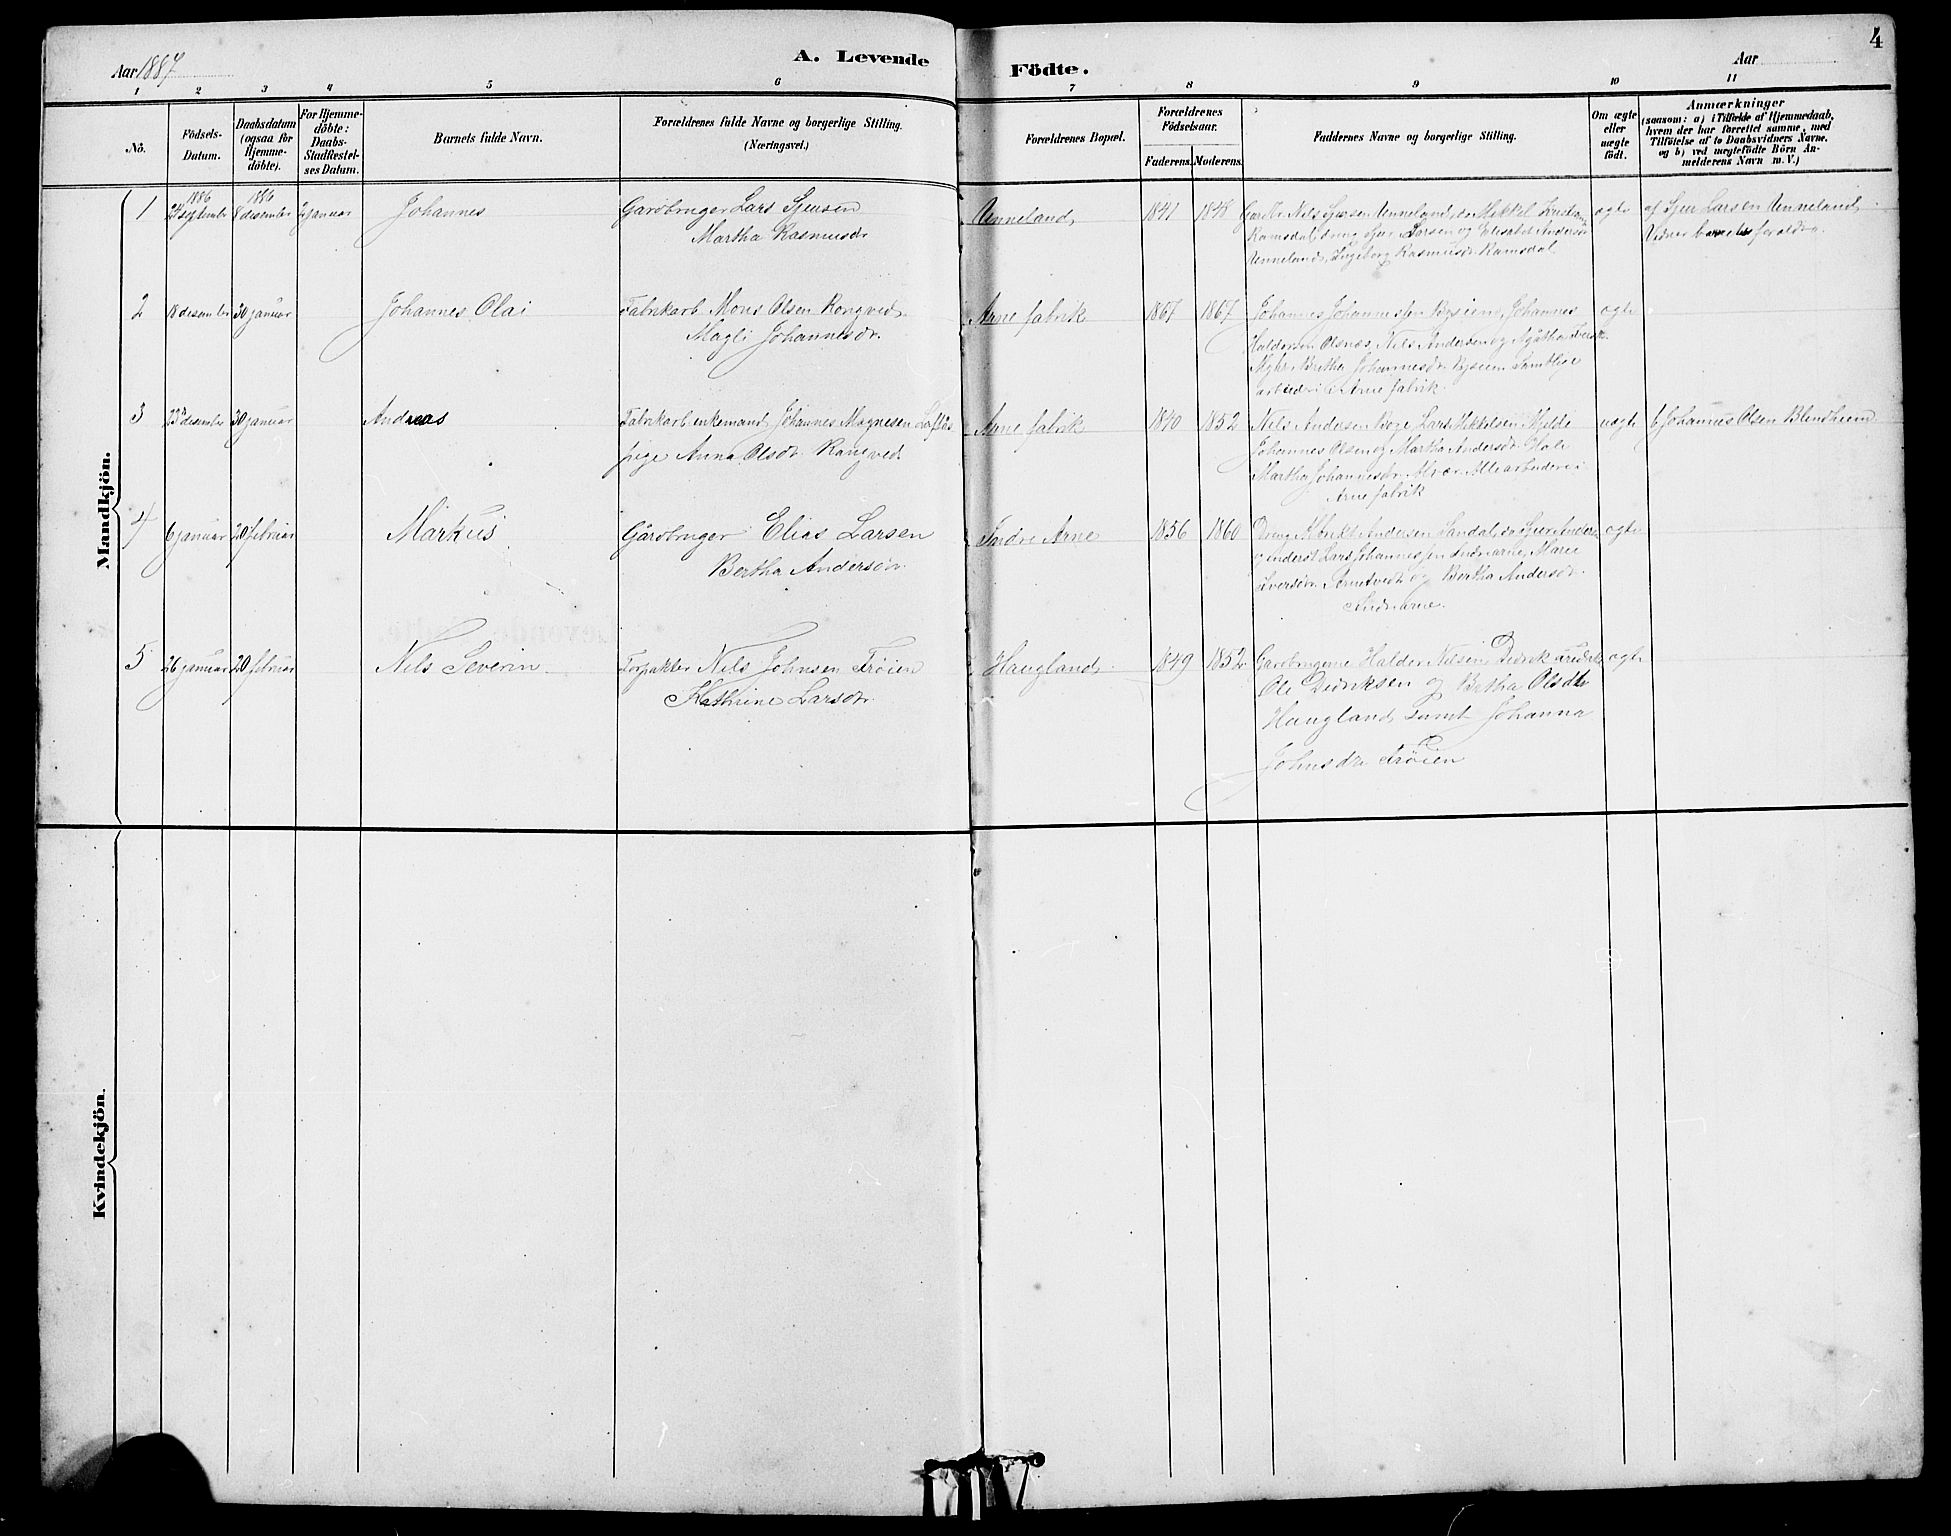 4
Aar 1887
A. Levende
Födte.
Aar
1 2 3 4 5 6 7 8 9 10 11
No.
Födsels-
Datum.
Daabsdatum
(ogsaa for
Hjemme-
döbte).
For Hjemme-
döbte:
Daabs-
Stadfæstel-
ses Datum.
Barnets fulde Navn.
Forældrenes fulde Navne og borgerlige Stilling.
(Næringsvei.)
Forældrenes Bopæl.
Forældrenes
Födselsaar.
Faderens. Moderens.
Faddernes Navne og borgerlige Stilling.
Om ægte
eller
uægte
födt.
Anmærkninger
(saasom: a) i Tilfælde af Hjemmedaab,
hvem der har forrettet samme, med
Tilföielse af to Daabsvidners Navne.
og b) ved uægtefödte Börn An-
melderens Navn m. V.)
Mandkjön.
1
1886
24 september
1886
8 desember
januar
Johannes
Gardbruger Lars Sjursen
Martha Rasmusdr
Unneland
1841 1848
Nils Sjursen Unneland, Mikkel
Ramsdal, dreng Sjur Larsen og Elisabet Andersdr
Unneland, Ingeborg Rasmusdr Ramsdal
ægte
af Sjur Larsen Unneland
Vidner barnets foraldre.
2
18 desember
30 januar
Johannes Olai
Fabrikarb. Mons Olsen Rongved
Magli Johannesdr.
Arne fabrik
1867 1867
Johannes Johannessen Bysiem, Johannes
Haldorsen Olsnes, Nils Andersen og Agatha
Myhr Bertha Johannesdr Bysiem Samtlige
arbeider i Arne fabrik
ægte
3
23 desember
30 januar
Andreas
Fabrikarb enkemand Johannes Magnesen Loftås
pige Anna Olsdr. Rongved
Arne fabrik
1840 1852
Nils Andersen Boge Lars Mikkelsen Mjelde
Johannes Olsen og Martha Andersdr Hole
Martha Johannesdr. Alvær Alle arbeidere i
Arne fabrik
uægte
b Johannes Olsen Blindheim
4
6 januar
20 februar
Markus
Gårdbruger Elias Larsen
Bertha Andersdr.
Indre Arne
1856 1860
Dreng Andersen Sandal,
Lars Johannessen Indrearne, Marie
Iversdr. Arnetvedt og Bertha Andersdr.
Indrearne.
ægte
5
26 januar
20 februar
Nils Severin
Forpakter Nils Johnsen Trøien
Kathrine Larsdr.
Haugland
1849 1852
Gardbrugerne Haldor Nilsen, Didrik Fredriks
Ole Didriksen og Bertha Olsdtr
Haugland samt Johanna
Johnsdtr Trøien
ægte
Kvindekjön.